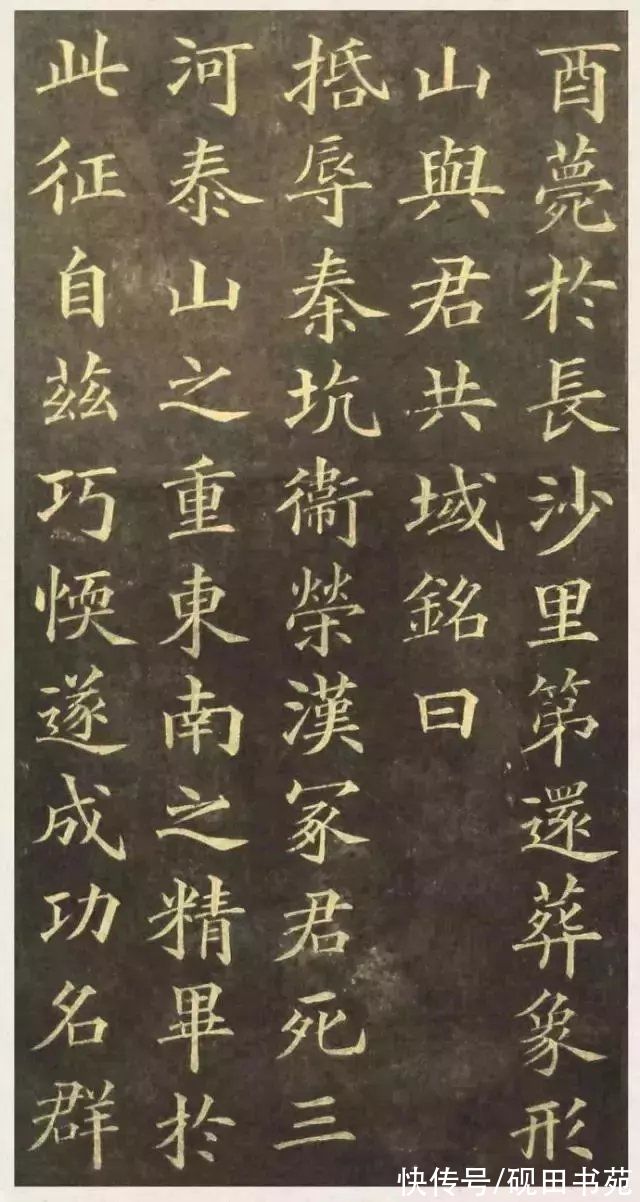 酉薨於長沙里第還葬象形
山與君共域銘曰
捪辱秦坑衞榮漢冢君死三
河泰山之重東南之精畢於
此征自茲巧愞遂成功名群
快传号/砚田书苑